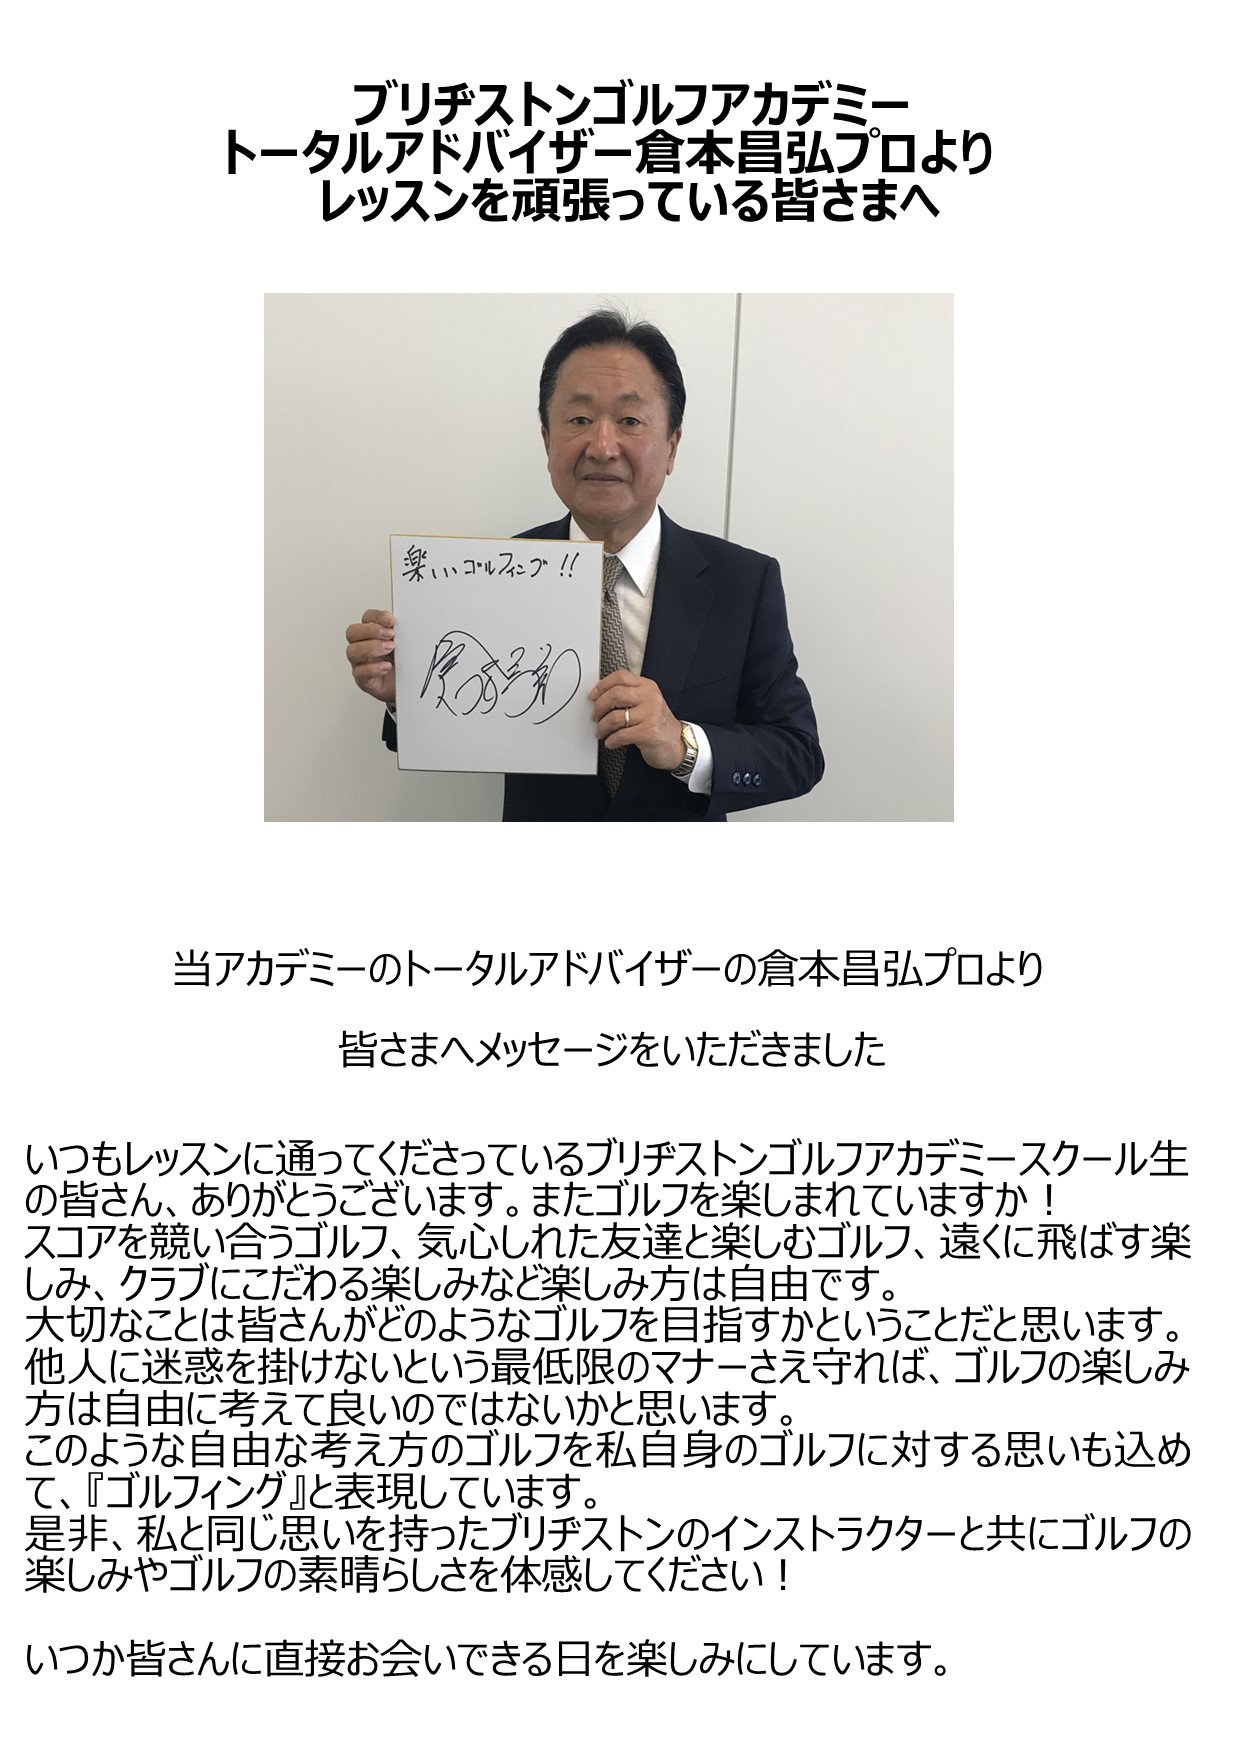 ブリヂストンゴルフアカデミー
トータルアドバイザー倉本昌弘プロより
レッスンを頑張っている皆さまへ
楽しいゴルフィング!!
当アカデミーのトータルアドバイザーの倉本昌弘プロより
皆さまへメッセージをいただきました
いつもレッスンに通ってくださっているブリヂストンゴルフアカデミースクール生
の皆さん、ありがとうございます。またゴルフを楽しまれていますか！
スコアを競い合うゴルフ、気心しれた友達と楽しむゴルフ、遠くに飛ばす楽
しみ、クラブにこだわる楽しみなど楽しみ方は自由です。
大切なことは皆さんがどのようなゴルフを目指すかということだと思います。
他人に迷惑を掛けないという最低限のマナーさえ守れば、ゴルフの楽しみ
方は自由に考えて良いのではないかと思います。
このような自由な考え方のゴルフを私自身のゴルフに対する思いも込め
て、『ゴルフィング』と表現しています。
是非、私と同じ思いを持ったブリヂストンのインストラクターと共にゴルフの
楽しみやゴルフの素晴らしさを体感してください！
いつか皆さんに直接お会いできる日を楽しみにしています。